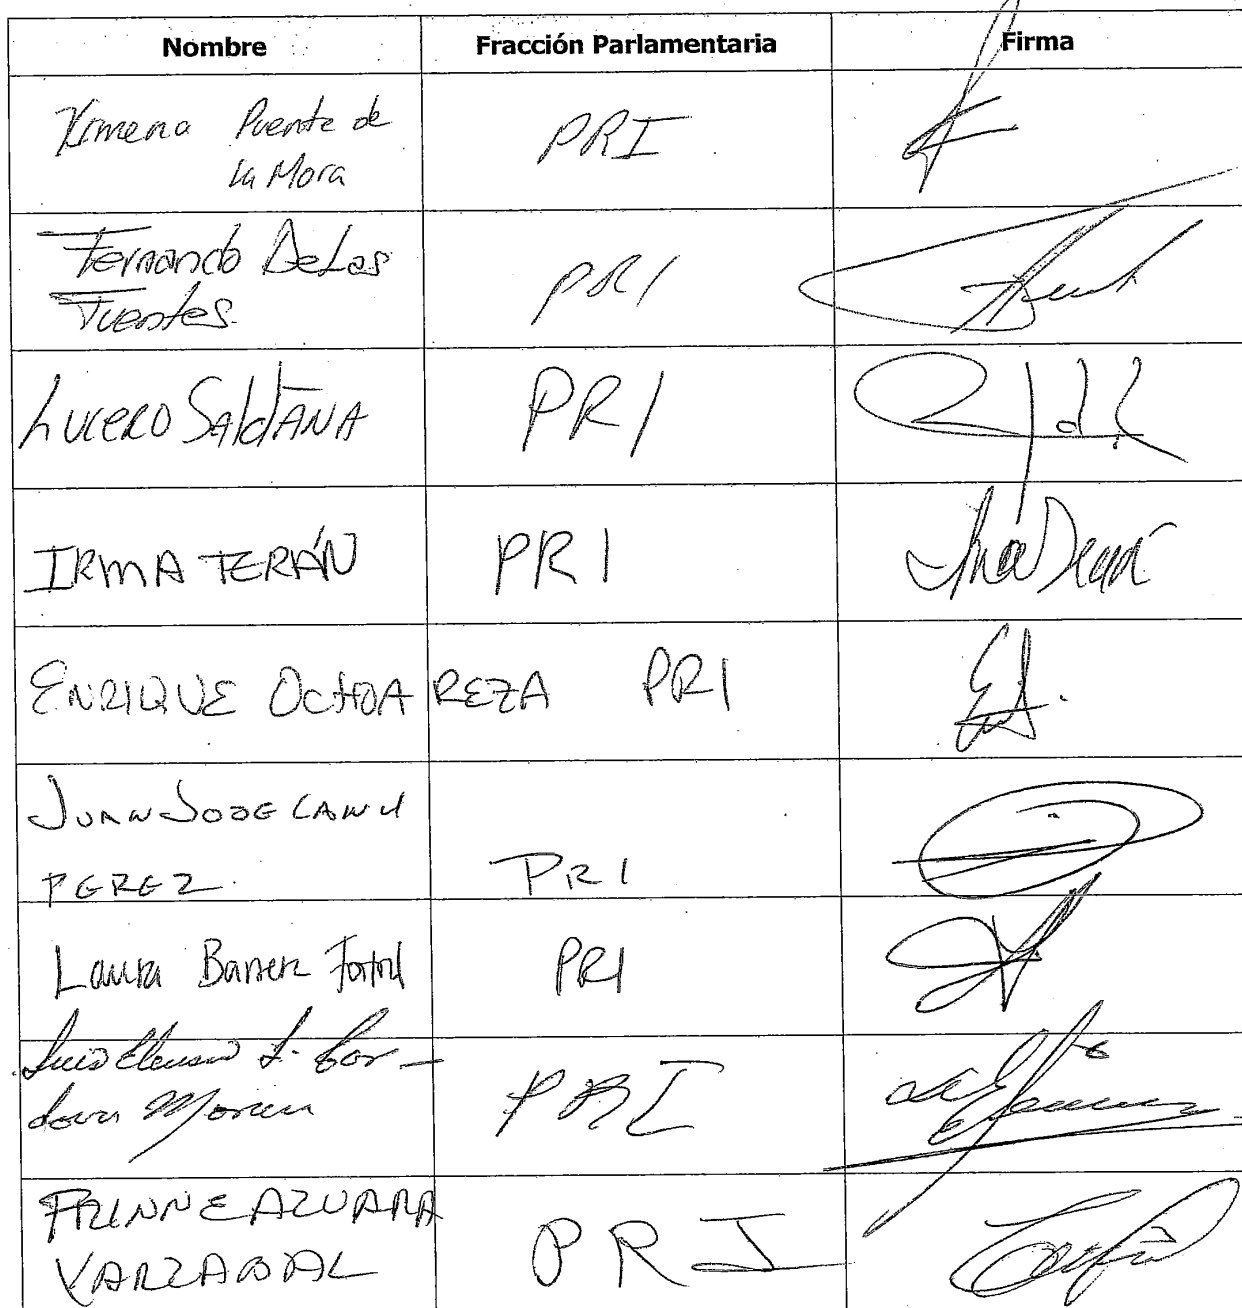 Nombre Fracción Parlamentaria Firma
Ximena Puente de
la Mora PRI
Fernando De Las
Fuentes. PRI
Lucero SaldAÑA PRI
IRMA TERÁN PRI
ENRIQUE OCHOA REZA PRI
JUAN JOSE CANUL
PEREZ. PRI
Laura Barrera Fortoul PRI
Luis Eleusis L. Cor-
dova Moran PRI
FRINNE AZUARA
YARZABAL PRI